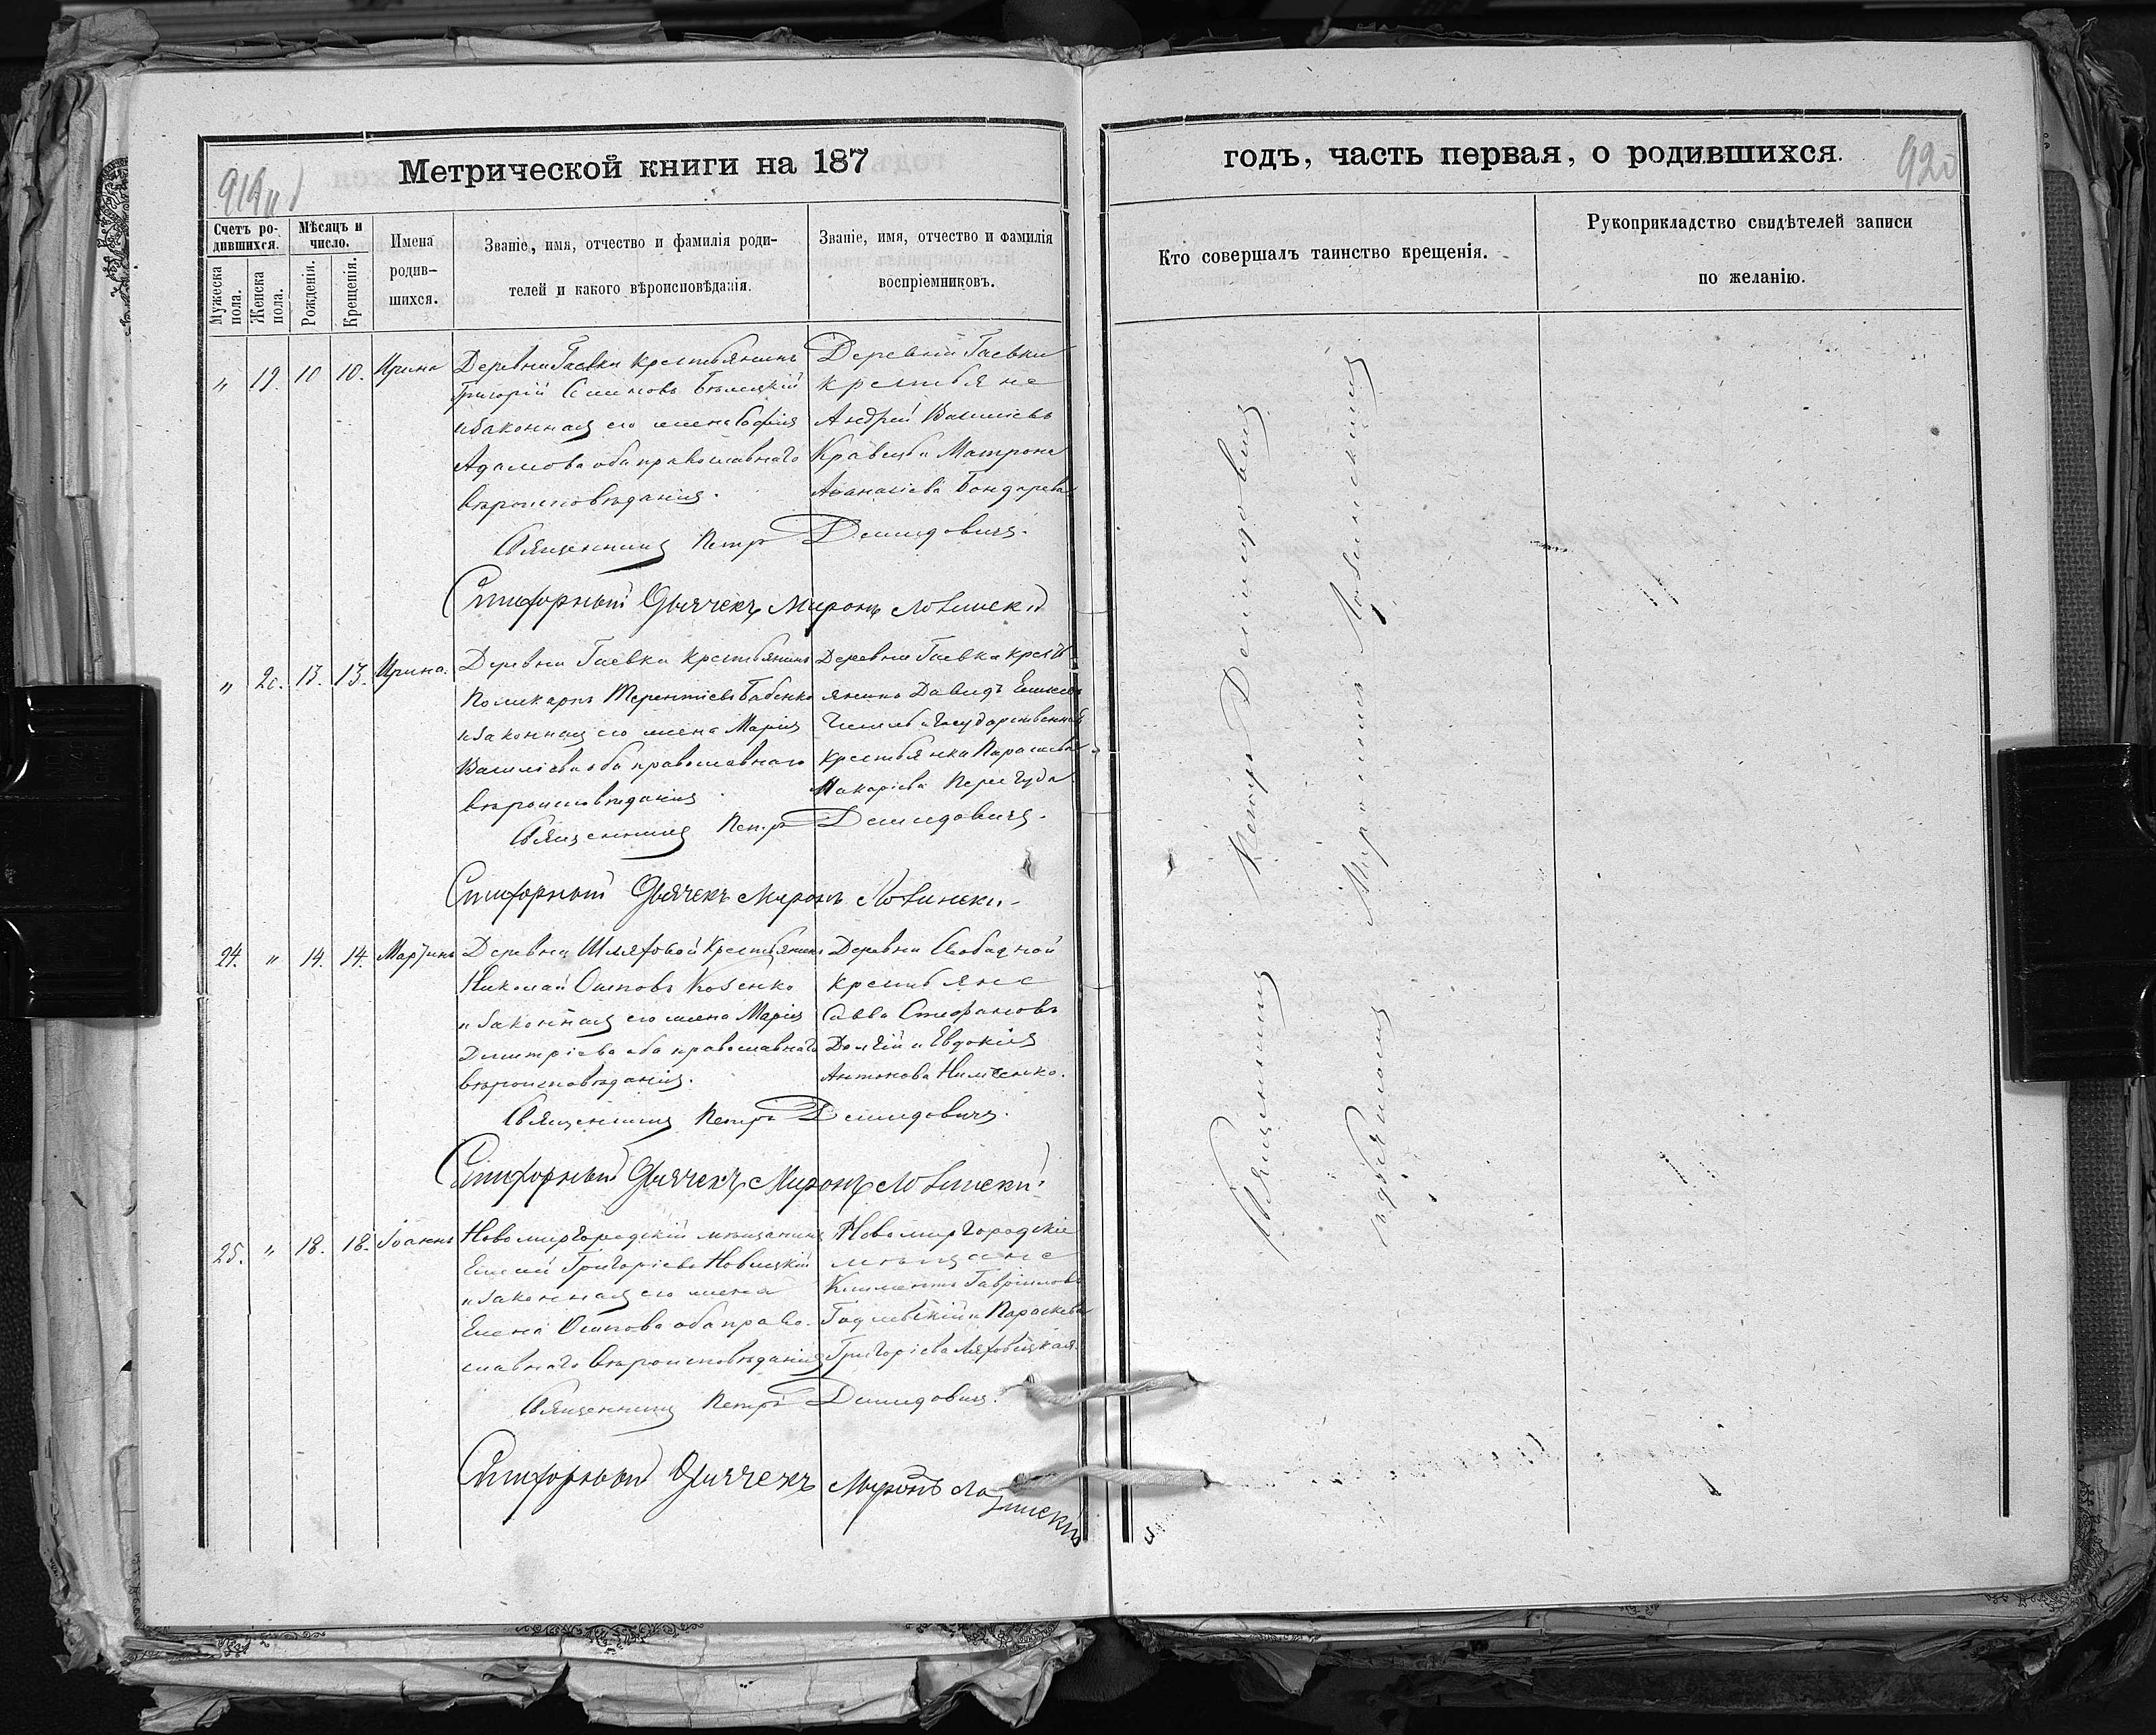 Метрической книги на 187
919
Счетъ ро-
дившихся.
Мѣсяцъ и
число.
Мужеска
пола.
Женска
пола.
Рожденія.
Крещенія.
Имена
родив-
шихся.
Званіе, имя, отчество и фамилія роди-
телей и какого вѣроисповѣданія.
Званіе, имя, отчество и фамилія
воспріемниковъ.
„ 19. 10 10. Ирина
Деревни Гаевки крестьянинъ
Григорій Семиновъ Бѣлецкій
и законная его жена Софія
Адамова оба православнаго
вѣроисповѣданія.
Деревни Гаевки
крестьяне
Андрей Василіевъ
Кравецъ и Матрона
Аѳанасіева Бондарева
Священникъ Петръ Демидовичъ.
Дьячекъ Миронъ Лозинскій
„ 20. 13. 13. Ирина.
Деревни Гаевки крестьянинъ
Поликарпъ Терентіевъ Бабенко
и законная его жена Марія
Василіева оба православнаго
вѣроисповѣданія
Деревни Гаевки кресть
янинъ Давидъ
и государственная
крестьянка Параскева
Макаріева Перегуда
Священникъ Петръ Демидовичъ.
Дьячекъ Миронъ Лозинскій
24. „ 14. 14. Мартинъ
Деревни Шляховой крестьянинъ
Николай Осиповъ Козенко
и законная его жена Марія
Димитріева оба православнаго
вѣроисповѣданія.
Деревни Свободной
крестьяне
Савва Стефановъ
Долгій и Евдокія
Антонова
Священникъ Петръ Демидовичъ.
Дьячекъ Миронъ Лозинскій
25. „ 18. 18. Іоаннъ
Новомиргородскій мѣщанинъ
Григоріевъ Новицкій
и законная его жена
Елена Осипова оба право-
славнаго вѣроисповѣданія
Новомиргородскіе
мѣщане
Климентъ Гавріиловъ
и Параскева
Григоріева Ляховицкая.
Священникъ Петръ Демидовичъ.
Дьячекъ Миронъ Лозинскій
годъ, часть первая, о родившихся.
920
Кто совершалъ таинство крещенія.
Рукоприкладство свидѣтелей записи
по желанію.
Священникъ Петръ Демидовичъ
Мирономъ Лозинскимъ